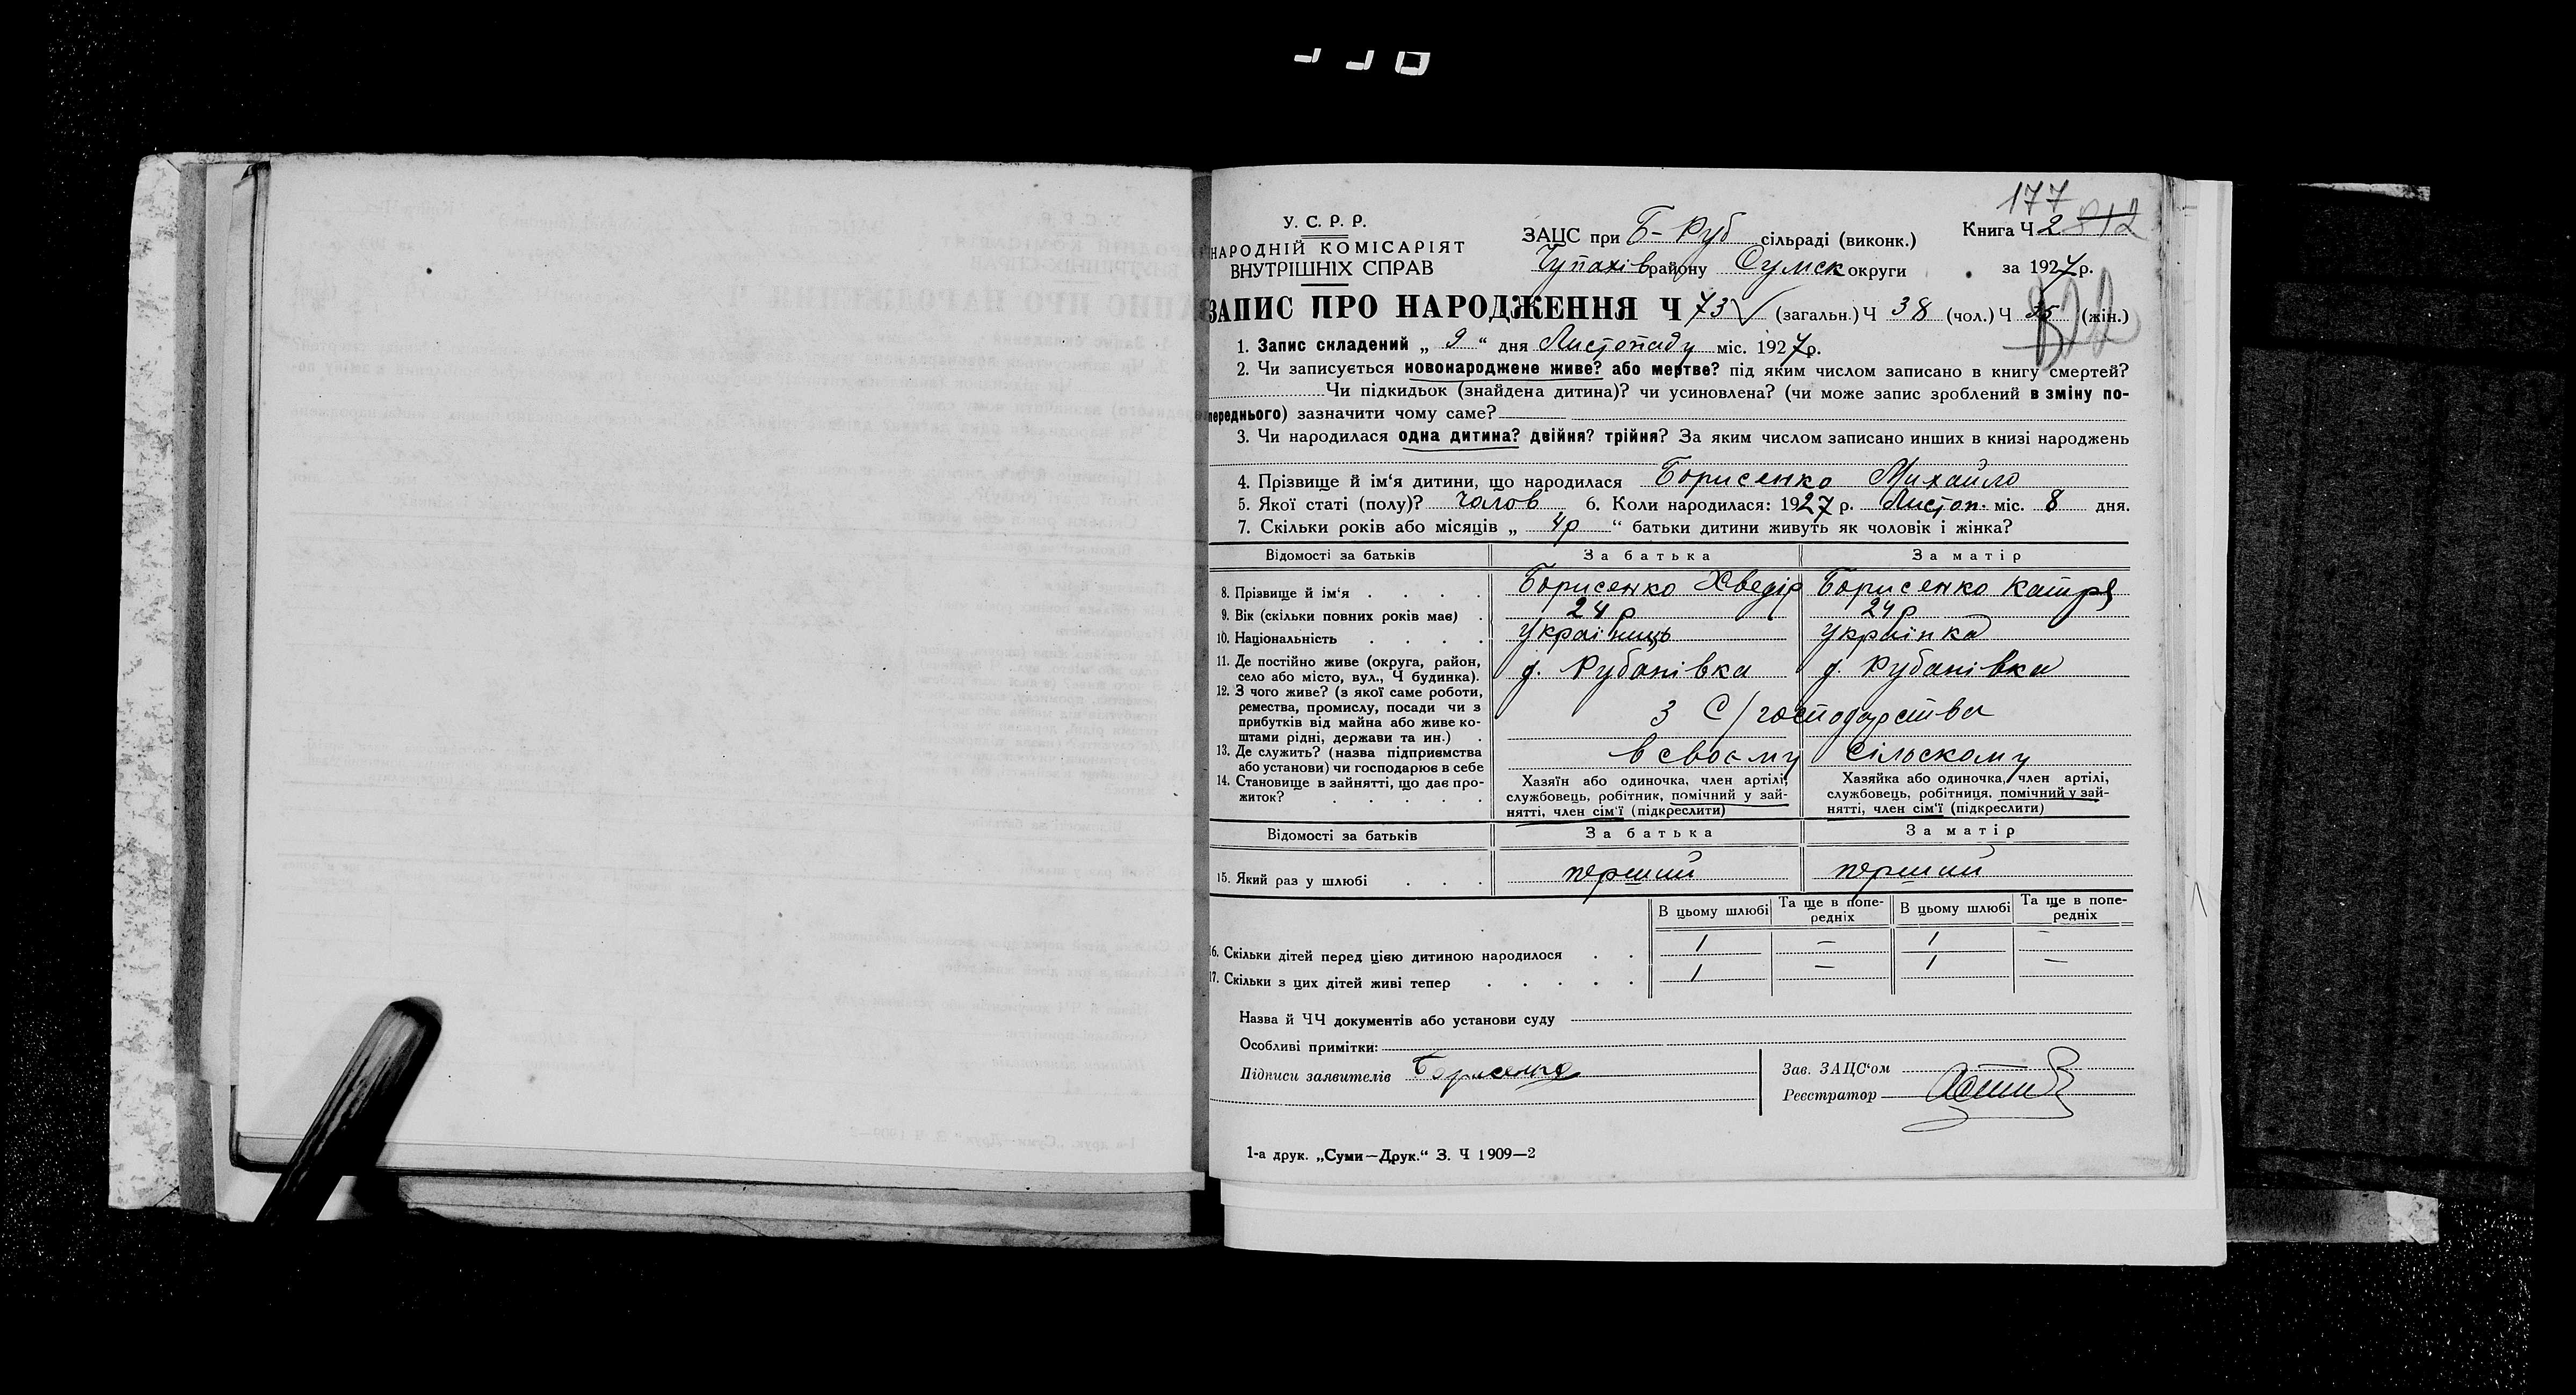 177
У. С. Р. Р.
НАРОДНІЙ КОМІСАРІЯТ
ВНУТРІШНІХ СПРАВ
ЗАЦС при Б-Руб сільраді (виконк.)
Чупахів району Сумск округи
Книга Ч 2 812
за 1927 р.
ЗАПИС ПРО НАРОДЖЕННЯ Ч 73 (загальн.) Ч 38 (чол.) Ч 35 (жін.)
1. Запис складений „ 9 “ дня Листопаду міс. 1927 р.
2. Чи записується новонароджене живе? або мертве? під яким числом записано в книгу смертей?
Чи підкидьок (знайдена дитина)? чи усиновлена? (чи може запис зроблений в зміну по-
переднього) зазначити чому саме?
3. Чи народилася одна дитина? двійня? трійня? За яким числом записано инших в книзі народжень
4. Прізвище й ім‘я дитини, що народилася Борисенко Михайло
5. Якої статі (полу)? чолов 6. Коли народилася: 1927 р. Листоп. міс. 8 дня.
7. Скільки років або місяців „ 4р “ батьки дитини живуть як чоловік і жінка?
Відомості за батьків За батька За матір
8. Прізвище й ім‘я Борисенко Хведір Борисенко Катря
9. Вік (скільки повних років має) 24 р 24 р
10. Національність Українець Українка
11. Де постійно живе (округа, район,
село або місто, вул., Ч будинка). д. Рубанівка д. Рубанівка
12. З чого живе? (з якої саме роботи,
ремества, промислу, посади чи з
прибутків від майна або живе ко-
штами рідні, держави та ин.)
З С/господарства
13. Де служить? (назва підприємства
або установи) чи господарює в себе
в своєму сільскому
14. Становище в зайнятті, що дає про-
житок?
Хазяїн або одиночка, член артілі,
службовець, робітник, помічний у зай-
нятті, член сім‘ї (підкреслити)
Хазяйка або одиночка, член артілі,
службовець, робітниця, помічний у зай-
нятті, член сім‘ї (підкреслити)
Відомості за батьків За батька За матір
15. Який раз у шлюбі перший перший
В цьому шлюбі Та ще в попе-
редніх В цьому шлюбі Та ще в попе-
редніх
16. Скільки дітей перед цією дитиною народилося 1 — 1 —
17. Скільки з цих дітей живі тепер 1 — 1 —
Назва й ЧЧ документів або установи суду
Особливі примітки:
Підписи заявителів Борисенко
Зав. ЗАЦС‘ом
Реєстратор
1-а друк. „Суми—Друк.“ З. Ч 1909—2